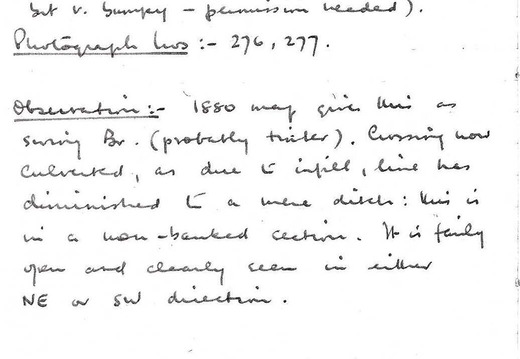 but v. bumpy - permission needed).
Photograph Nos :- 276, 277.
Observation:- 1880 map gives this as
swing Br. (probably timber). Crossing now
culverted, as due to infill, line has
diminished to a mere ditch: this is
in a non-banked section. It is fairly
open and clearly seen in either
NE or SW direction.